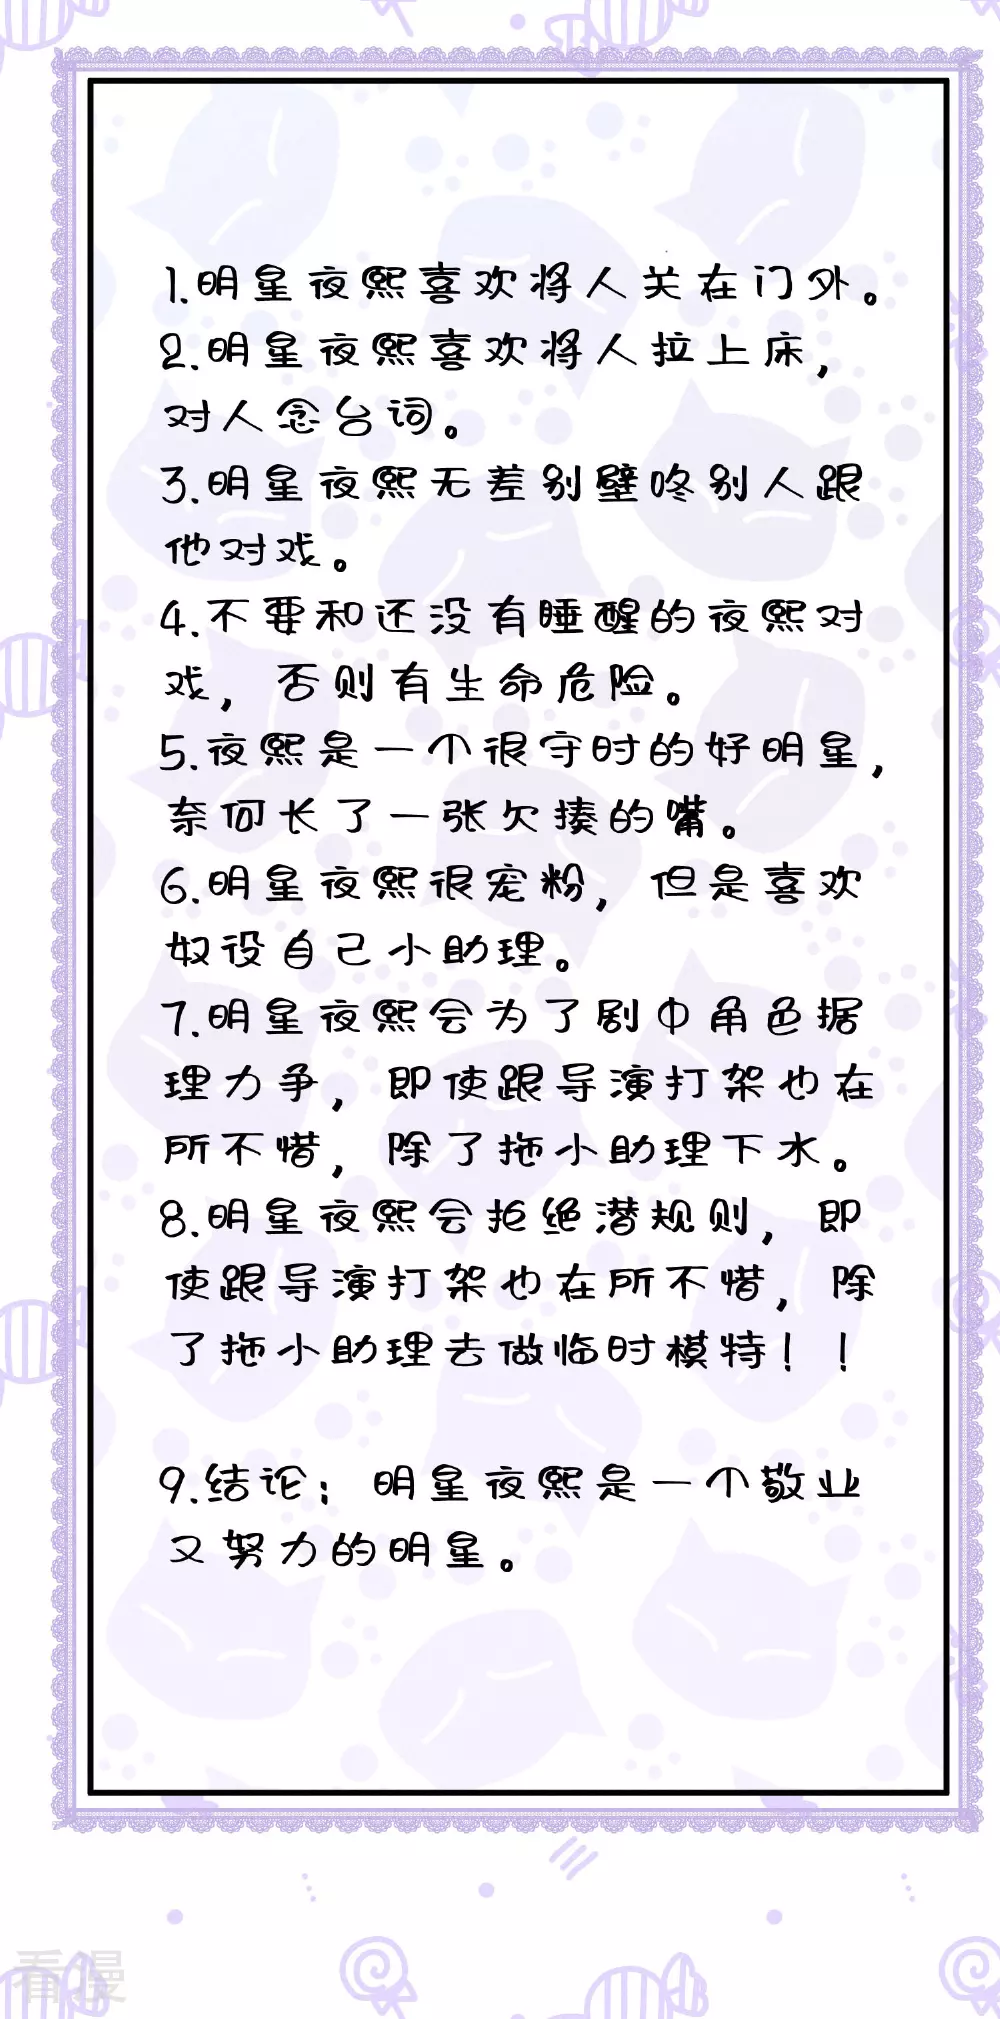 1.明星夜熙喜欢将人关在门外。
2.明星夜熙喜欢将人拉上床，
对人念台词。
3.明星夜熙无差别壁咚别人跟
他对戏。
4.不要和还没有睡醒的夜熙对
戏，否则有生命危险。
5.夜熙是一个很守时的好明星，
奈何长了一张欠揍的嘴。
6.明星夜熙很宠粉，但是喜欢
奴役自己小助理。
7.明星夜熙会为了剧中角色据
理力争，即使跟导演打架也在
所不惜，除了拖小助理下水。
8.明星夜熙会拒绝潜规则，即
使跟导演打架也在所不惜，除
了拖小助理去做临时模特！！
9.结论：明星夜熙是一个敬业
又努力的明星。
看漫